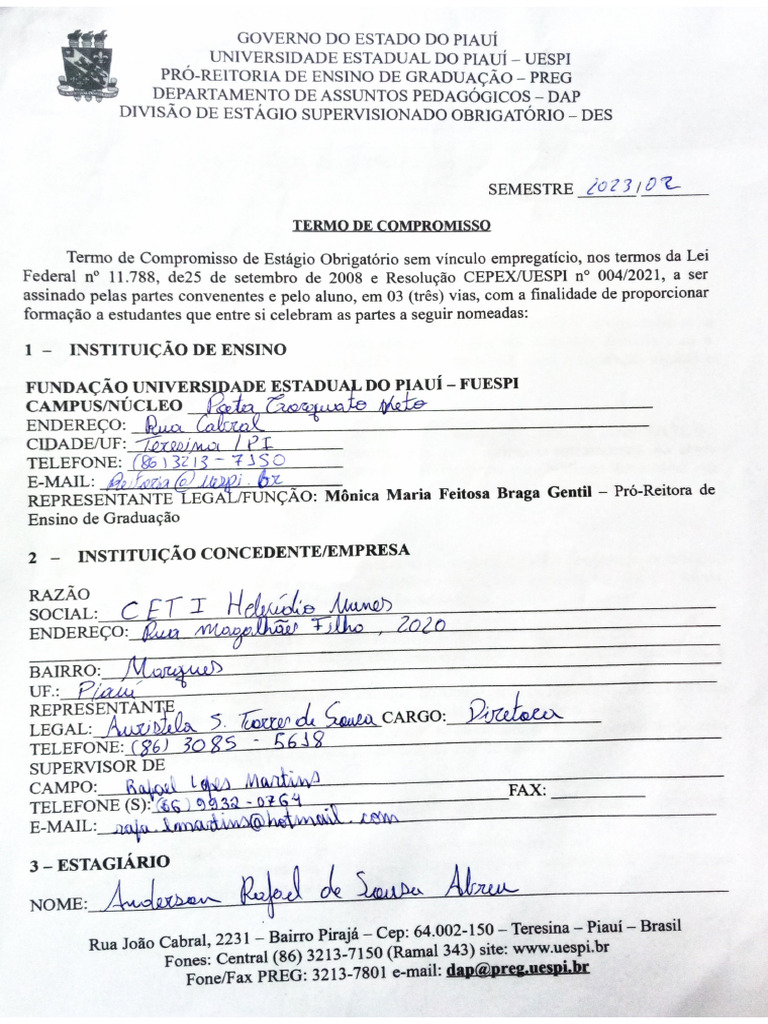 GOVERNO DO ESTADO DO PIAUÍ
UNIVERSIDADE ESTADUAL DO PIAUÍ – UESPI
PRÓ-REITORIA DE ENSINO DE GRADUAÇÃO – PREG
DEPARTAMENTO DE ASSUNTOS PEDAGÓGICOS – DAP
DIVISÃO DE ESTÁGIO SUPERVISIONADO OBRIGATÓRIO – DES
SEMESTRE 2023/02
TERMO DE COMPROMISSO
Termo de Compromisso de Estágio Obrigatório sem vínculo empregatício, nos termos da Lei
Federal nº 11.788, de25 de setembro de 2008 e Resolução CEPEX/UESPI n° 004/2021, a ser
assinado pelas partes convenentes e pelo aluno, em 03 (três) vias, com a finalidade de proporcionar
formação a estudantes que entre si celebram as partes a seguir nomeadas:
1 – INSTITUIÇÃO DE ENSINO
FUNDAÇÃO UNIVERSIDADE ESTADUAL DO PIAUÍ – FUESPI
CAMPUS/NÚCLEO Poeta Torquato Neto
ENDEREÇO: Rua Cabral
CIDADE/UF: Teresina / PI
TELEFONE: (86) 3213-7150
E-MAIL: Reitoria@uespi.br
REPRESENTANTE LEGAL/FUNÇÃO: Mônica Maria Feitosa Braga Gentil – Pró-Reitora de
Ensino de Graduação
2 – INSTITUIÇÃO CONCEDENTE/EMPRESA
RAZÃO
SOCIAL: CETI Helvídio Nunes
ENDEREÇO: Rua Magalhães Filho, 2020
BAIRRO: Marques
UF.: Piauí
REPRESENTANTE
LEGAL: Auristela S. Torres de Sousa CARGO: Diretora
TELEFONE: (86) 3085-5618
SUPERVISOR DE
CAMPO: Rafael Lopes Martins FAX:
TELEFONE (S): (86) 9932-0764
E-MAIL: rafa.lmartins@hotmail.com
3 – ESTAGIÁRIO
NOME: Anderson Rafael de Sousa Abreu
Rua João Cabral, 2231 – Bairro Pirajá – Cep: 64.002-150 – Teresina – Piauí – Brasil
Fones: Central (86) 3213-7150 (Ramal 343) site: www.uespi.br
Fone/Fax PREG: 3213-7801 e-mail: dap@preg.uespi.br